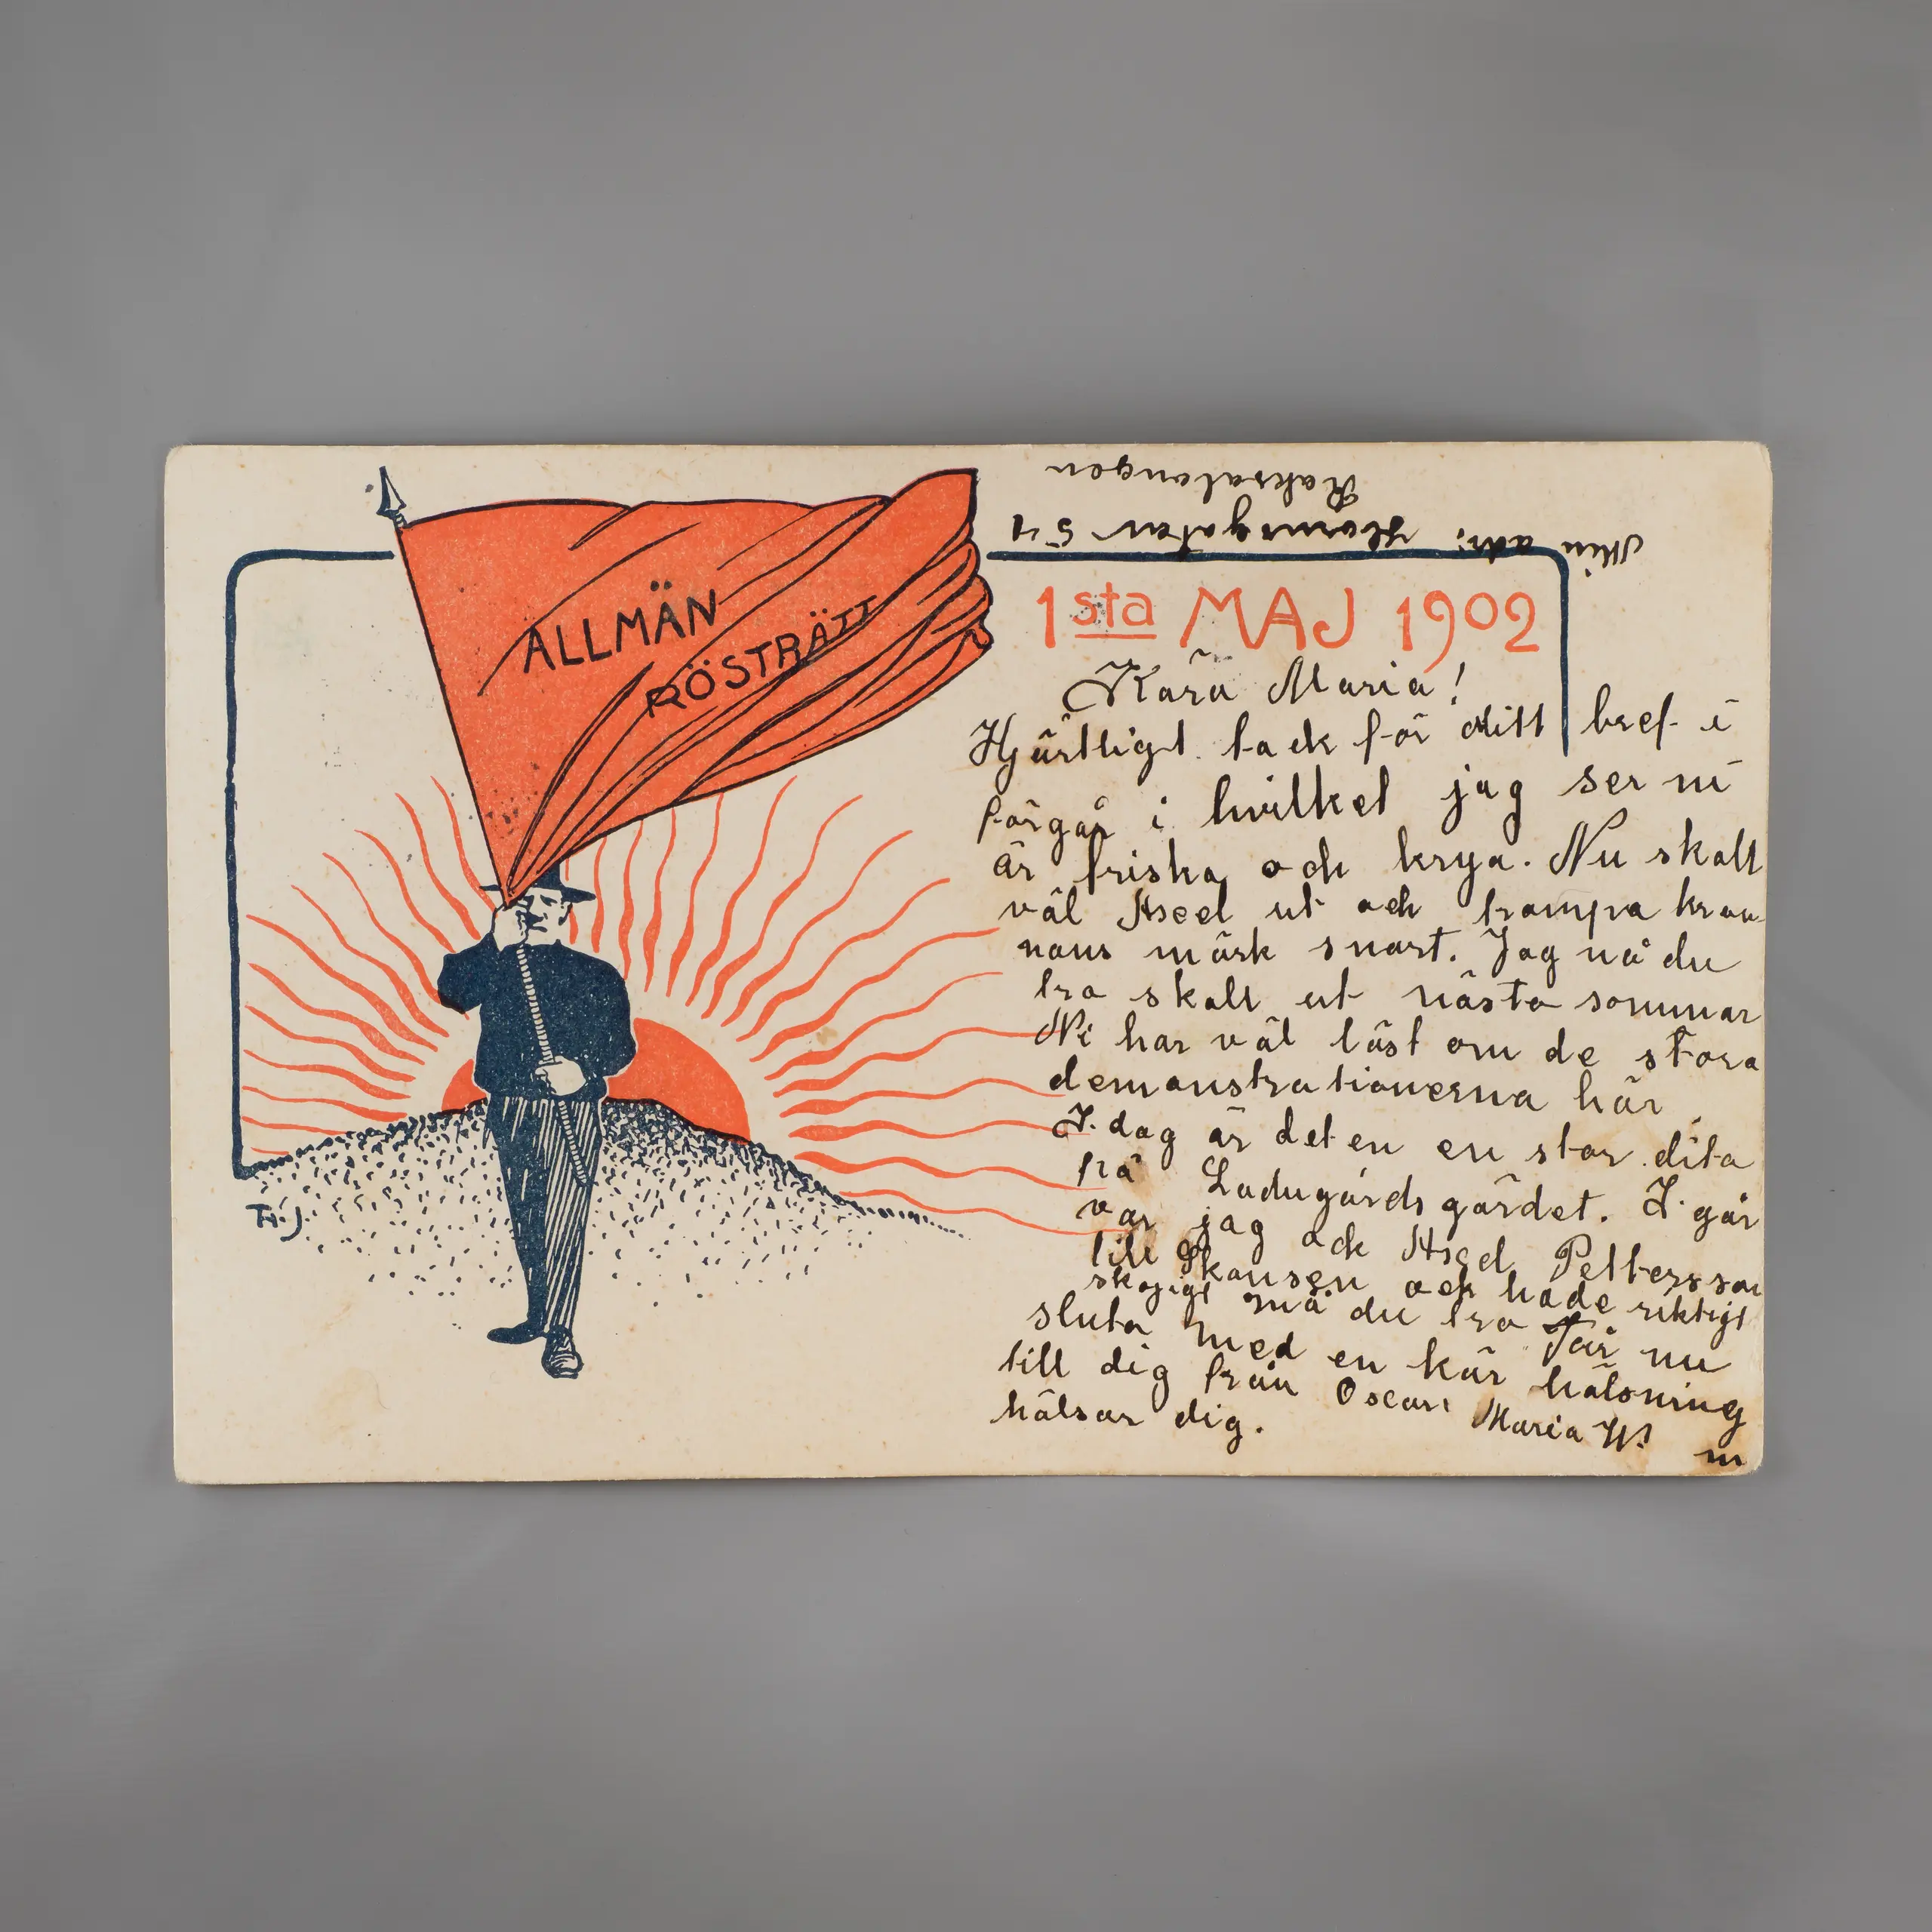 Raksalongen
Min adr: Hornsgatan 54
ALLMÄN
RÖSTRÄTT
1sta MAJ 1902
Kära Maria!
Hjärtligt tack för ditt bref i
förgår i hvilket jag ser ni
är friska och krya. Nu skall
väl Axel ut och trampa kro
nans mark snart. Jag må du
tro skall ut nästa sommar
Ni har väl läst om de stora
demonstrationerna här
I dag är det en en stor dito
på Ladugårdsgärdet. I går
var jag ock Axel Pettersson
till Skansen och hade riktigt
skojigt må du tro Får nu
sluta med en kär hälsning
till dig från Oscar. Maria W.
hälsar dig.
TH.J.